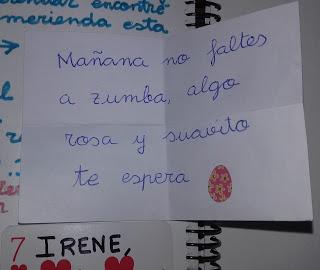 encontré
merienda esta
Mañana no faltes
a zumba, algo
rosa y suavito
te espera
7 IRENE,